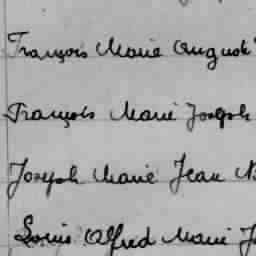 François Marie Auguste
François Marie Joseph
Joseph Marie Jean
Louis Alfred Marie